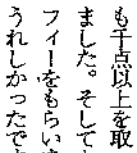 も千点以上を取
ました。そして
フィーをもらい
うれしかったで